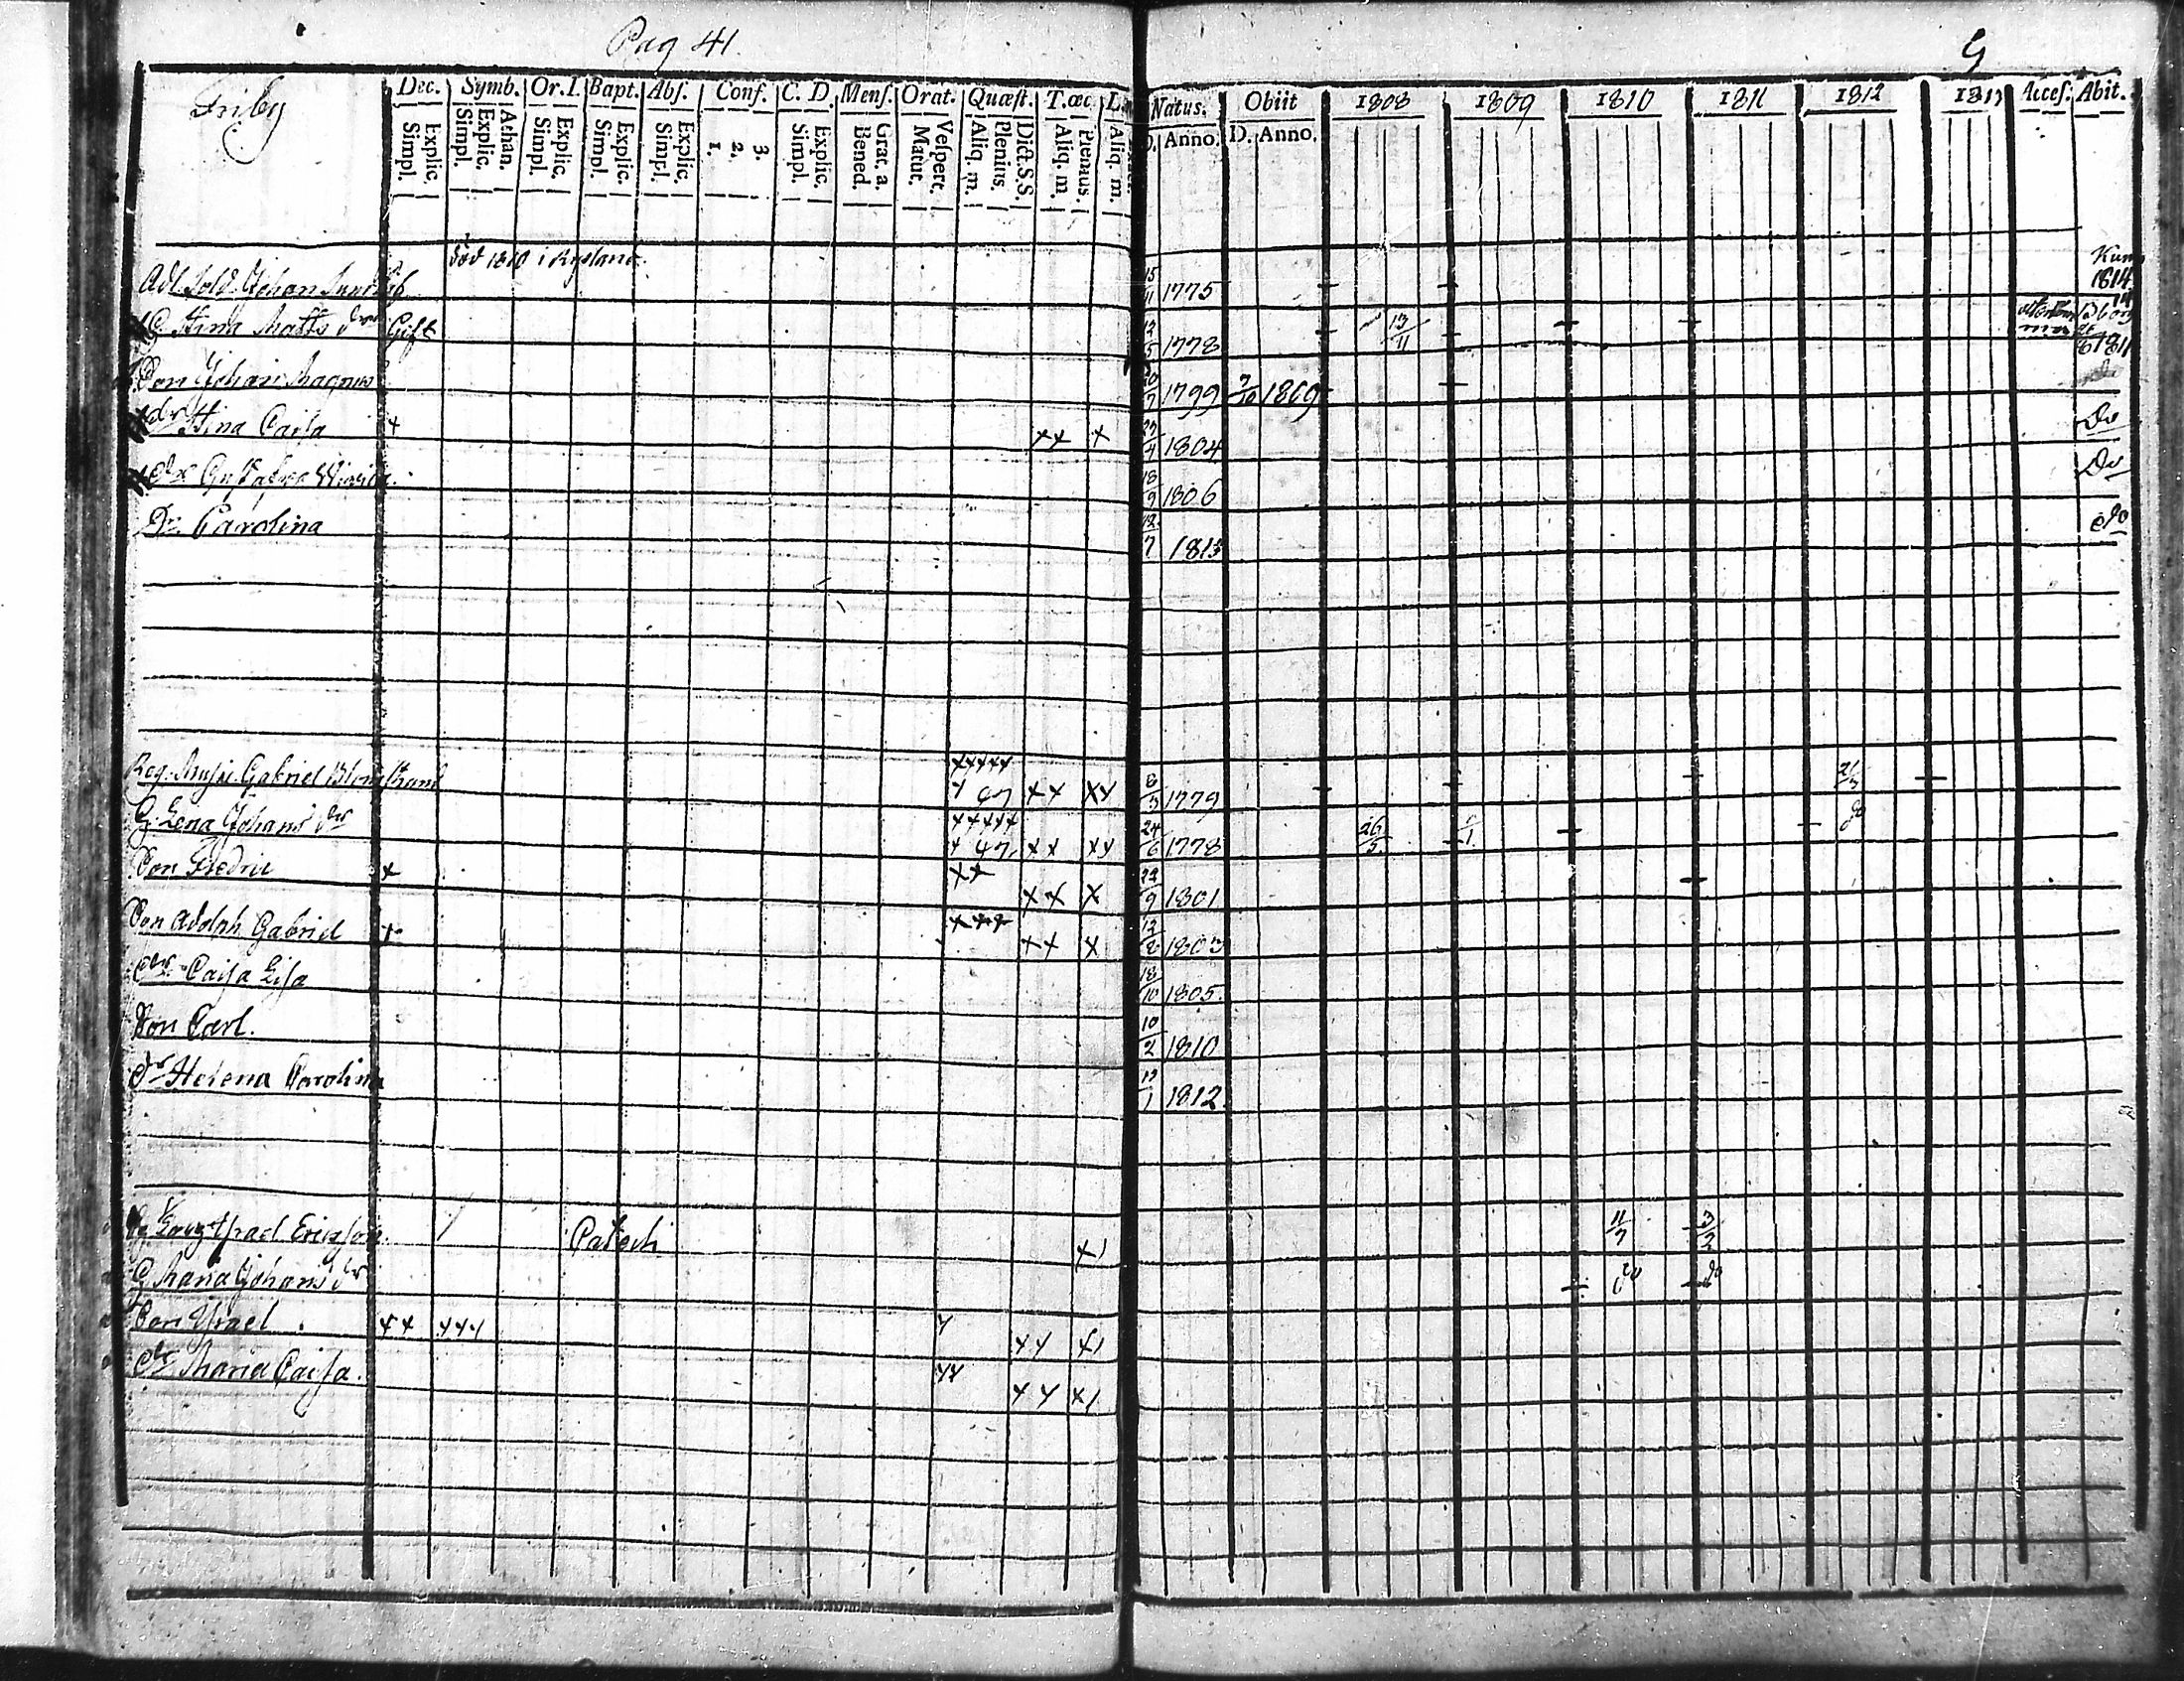 Pag 41.
G
Friby
Dec. Symb. Or.I. Bapt. Abs. Conf. C. D. Mens. Orat. Quæst. T.œc. Natus. Obiit 1808 1809 1810 1811 1812 181 Acces. Abit.
Explic. Simpl. Athan. Explic. Simpl. Explic. Simpl. Explic. Simpl. Explic. Simpl. 3. 2. 1. Explic. Simpl. Grat. a. Bened. Vespert. Matut. Dict. S.S. Plenius. Aliq. m. Plenius. Aliq. m. Aliq. m. D. Anno. D. Anno.
död 1810 i Ryssland
Adl. Sold. Johan 15/11 1775 1814
G Stina Matts dr Gift 1778 13/11 1811
Son Johan Magnus 1799 1869
dr Stina Caisa + ++ + 1804 Do
dr Gustafva 18/9 1806 Do
Dr Carolina 7 1813 do
+++++
Reg. Gabriel Blomstrand + 47 ++ ++ 1779 21/3
+++++
G. Lena Johans dr + 47 ++ ++ 24/6 1778 26/5 do
Son Fredric + ++ ++ + 22/9 1801
Son Adolph Gabriel + +++ ++ + 12/8 1803
dr Caisa Lisa 18/10 1805
Son Carl. 10/2 1810
dr Helena Carolina 1 1812
Israel Ericsson Catech + 11/7 3/2
G Maria Johans dr do do
Son Israel ++ +++ + ++ +
dr Maria Caisa. ++ ++ +